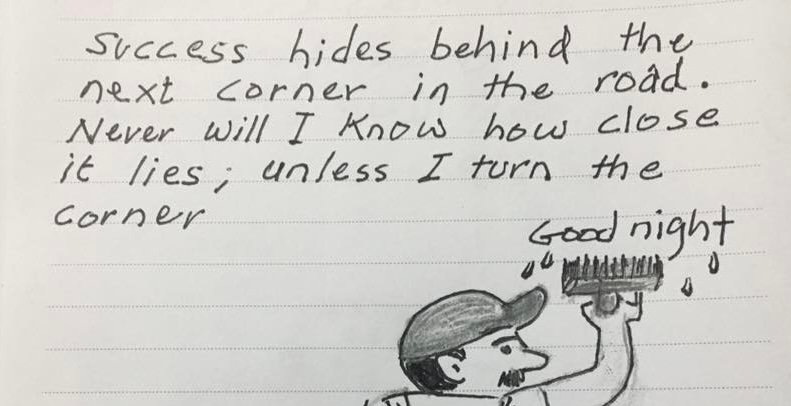 Success hides behind the
next corner in the road.
Never will I know how close
it lies; unless I turn the
corner
Good night